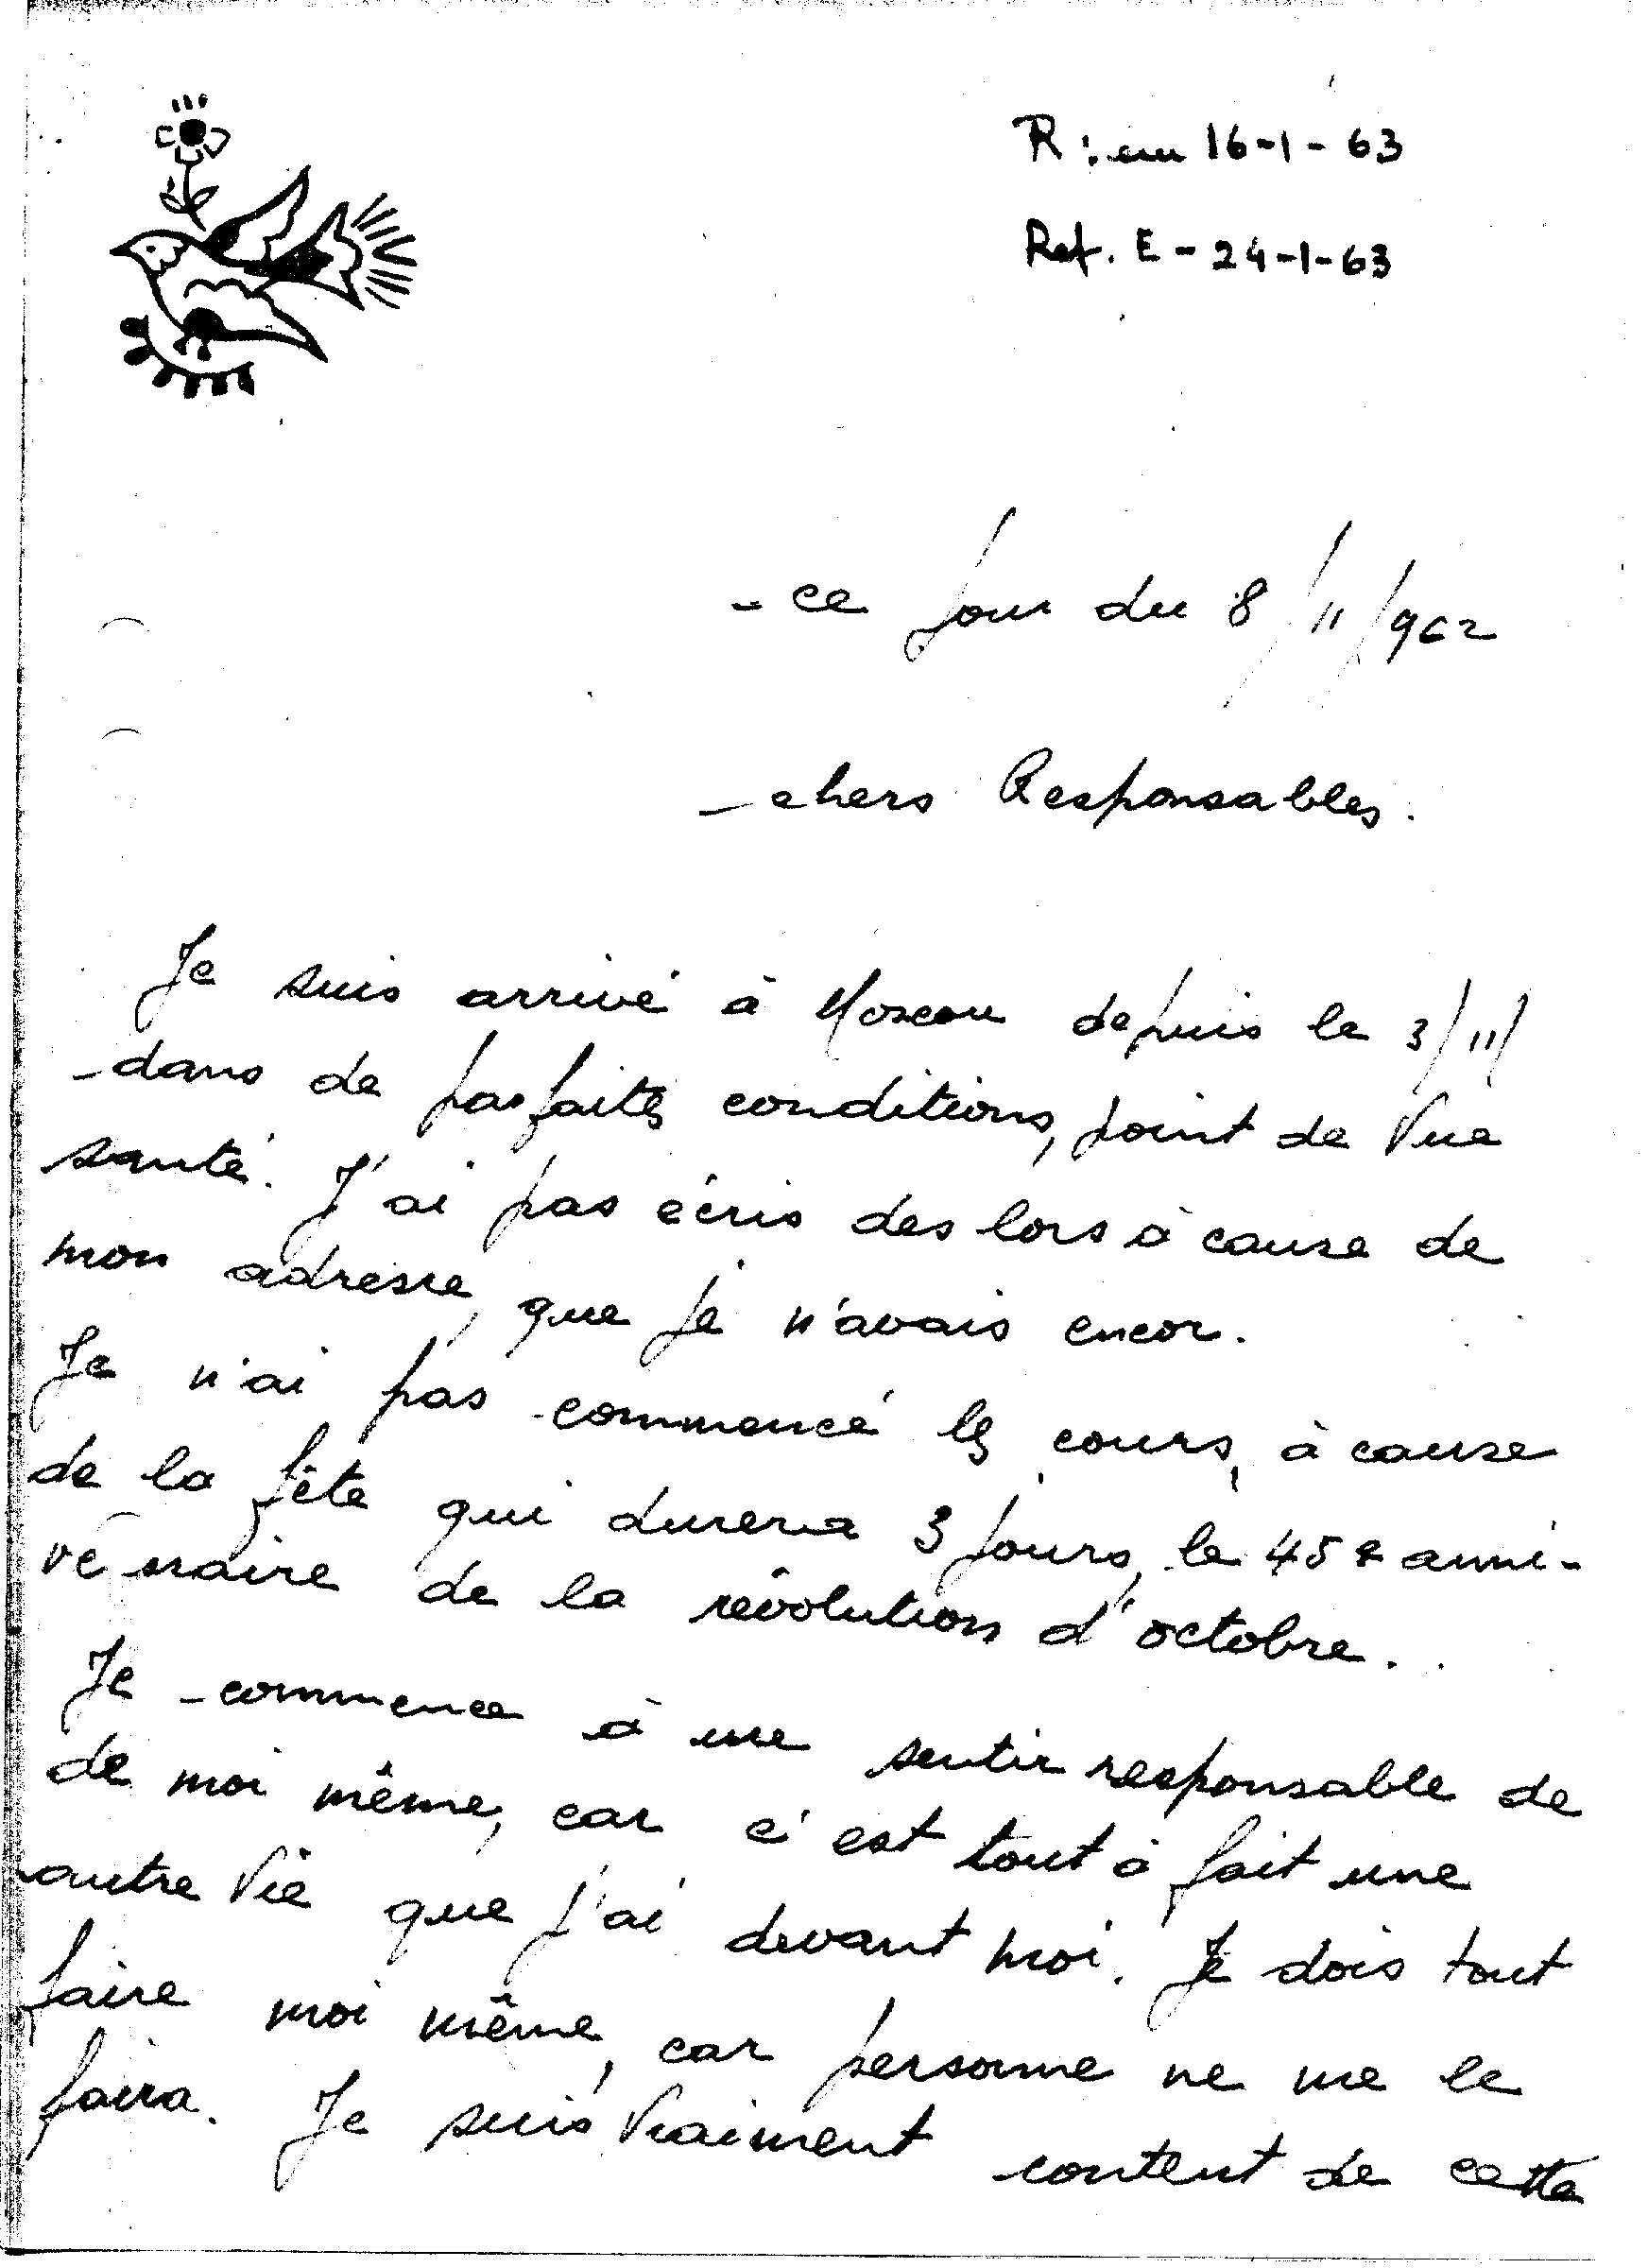 R: em 16-1-63
Ref. E - 24-1-63
- ce jour du 8/11/962
- chers Responsables.
Je suis arrivé à Moscou depuis le 3/11/
dans de parfaites conditions, point de vue
santé. J'ai pas écris des lors à cause de
mon adresse, que je n'avais encor.
Je n'ai pas commencé les cours, à cause
de la fête qui durera 3 jours, le 45e anni-
versaire de la révolution d'octobre.
Je commence à me sentir responsable de
de moi même, car c'est tout à fait une
autre vie que j'ai devant moi. Je dois tout
faire moi même, car personne ne me le
faira. Je suis vraiment content de cette